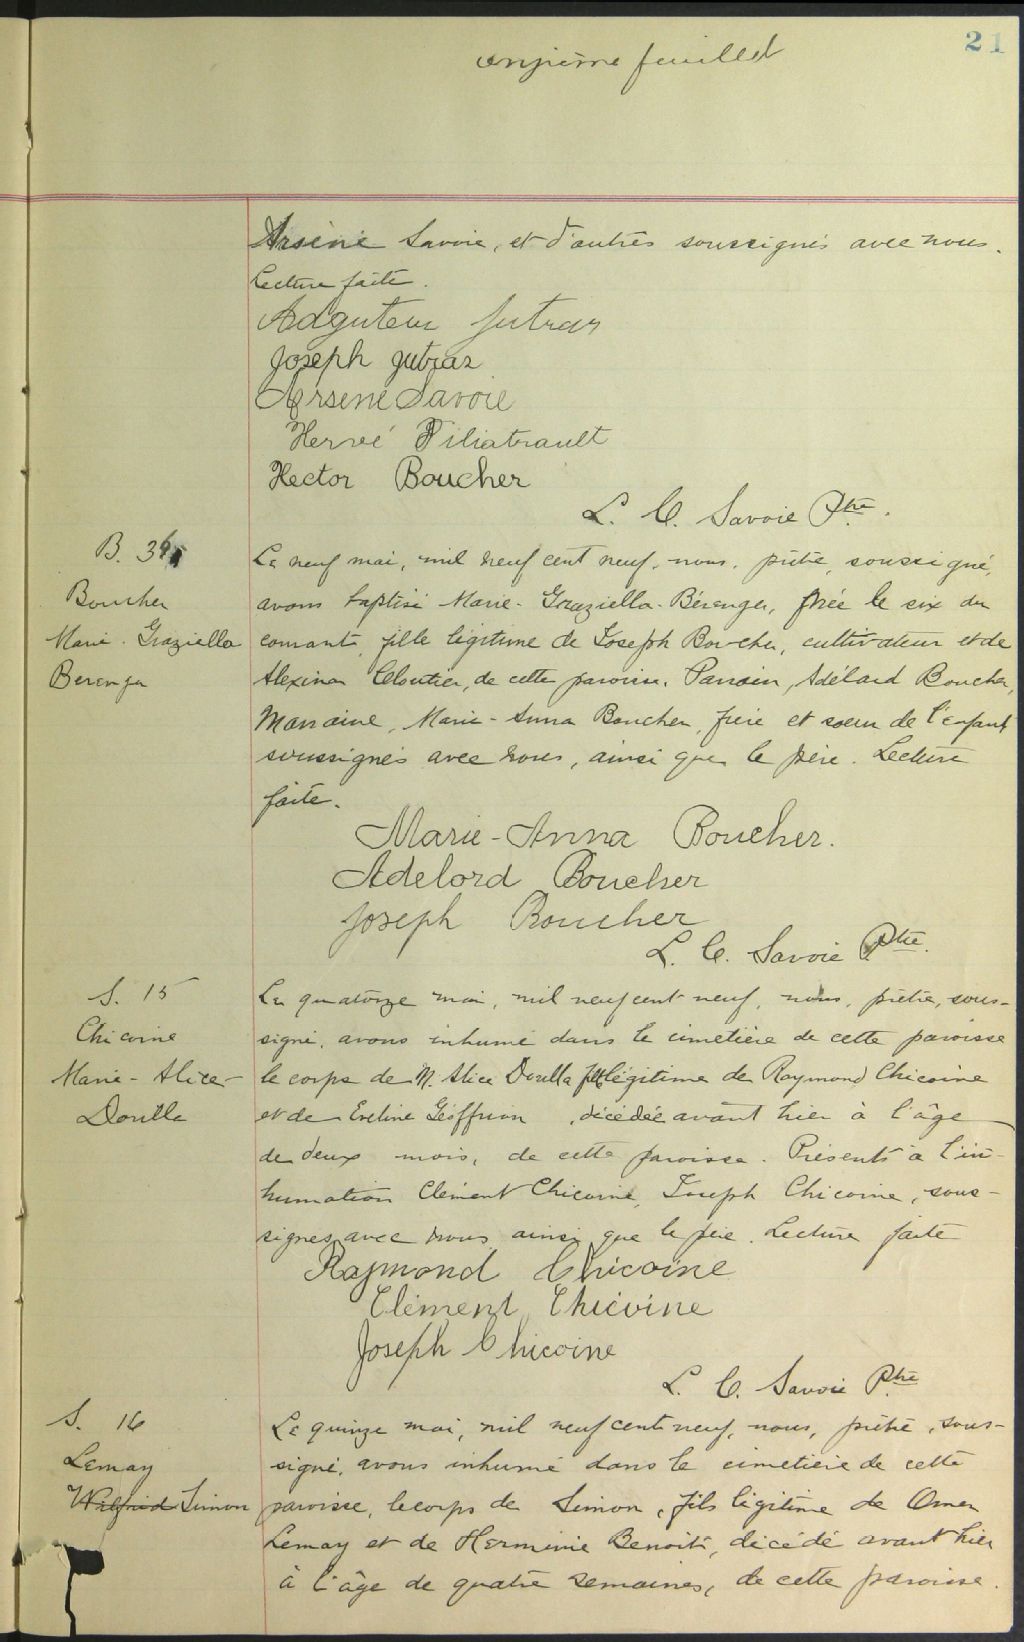 21
onzième feuillet
Arsène Savoie, et d'autres soussignés avec nous.
Lecture faite.
Adjuteur Jutras
Joseph Jutras
Arsene Savoie
Hervé Filiatrault
Hector Boucher
L. C. Savoie Ptre.
B. 36
Boucher
Marie-Graziella
Berenger
Le neuf mai, mil neuf cent neuf, nous, prêtre, soussigné,
avons baptisé Marie-Graziella-Bérenger, née le six du
courant, fille légitime de Joseph Boucher, cultivateur et de
Alexina Cloutier, de cette paroisse. Parrain, Adélard Boucher,
Marraine, Marie-Anna Boucher, frère et soeur de l'enfant
soussignés avec nous, ainsi que le père. Lecture
faite.
Marie-Anna Boucher.
Adelord Boucher
Joseph Boucher
L. C. Savoie Ptre.
S. 15
Chicoine
Marie-Alice-
Donilla
Le quatorze mai, mil neuf cent neuf, nous, prêtre, sous-
signé, avons inhumé dans le cimetière de cette paroisse
le corps de M. Alice Donilla fille légitime de Raymond Chicoine
et de Eveline Géoffrion, décédée avant hier à l'âge
de deux mois, de cette paroisse. Présents à l'in-
humation Clément Chicoine, Joseph Chicoine, sous-
signés avec nous ainsi que le père. Lecture faite
Raymond Chicoine
Clément Chicoine
Joseph Chicoine
L. C. Savoie Ptre
S. 16
Lemay
Wilfrid Simon
Le quinze mai, mil neuf cent neuf, nous, prêtre, sous-
signé, avons inhumé dans le cimetière de cette
paroisse, le corps de Simon, fils légitime de Omer
Lemay et de Herminie Benoit, décédé avant hier
à l'âge de quatre semaines, de cette paroisse.